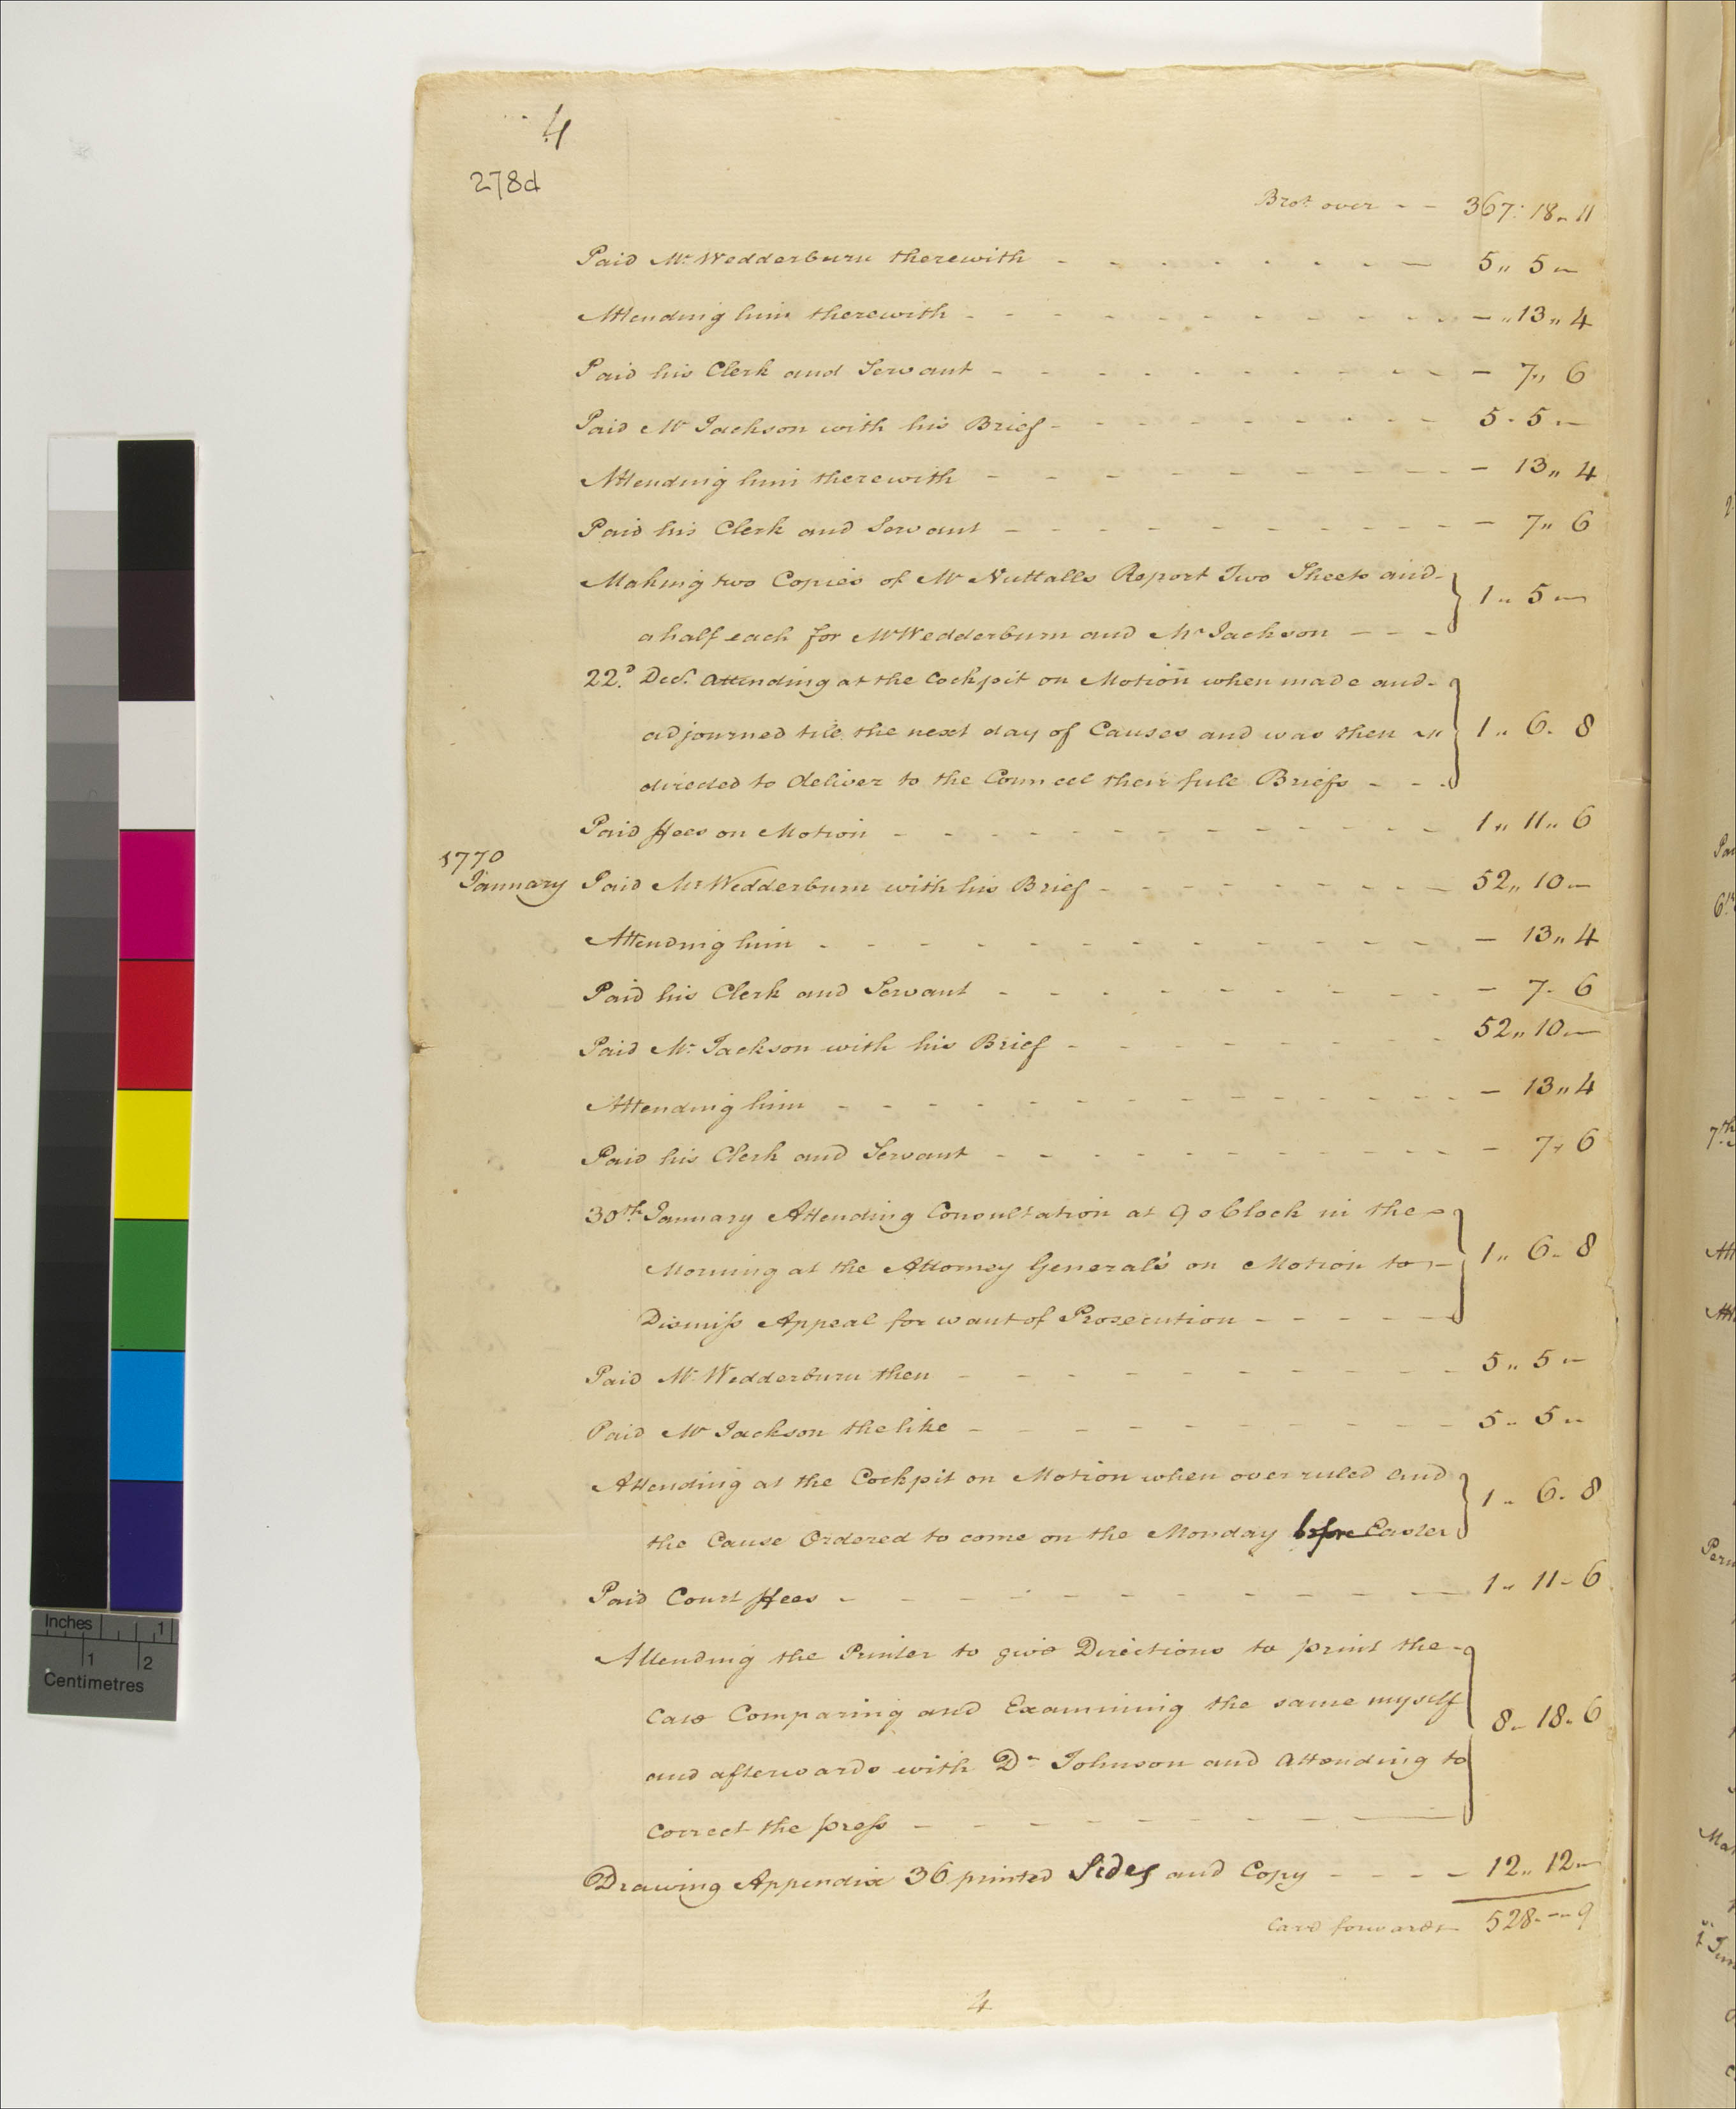 4
278d
Brot. over - - 367: 18 „ 11
Paid Mr. Wedderburn therewith - - - - 5 „ 5 „ —
Attending him therewith - - - - — „ 13 „ 4
Paid his Clerk and Servant - - - - — 7 „ 6
Paid Mr Jackson with his Brief - - - - 5 - 5 „ —
Attending him therewith - - - - — 13 „ 4
Paid his Clerk and Servant - - - - — 7 „ 6
Making two Copies of Mr Nuttalls Report Two Sheets and
a half each for Mr Wedderburn and Mr Jackson - - - 1 „ 5 „ —
22d. Decr. Attending at the Cockpit on Motion when made and
adjourned till the next day of Causes and was then 1 „ 6 - 8
directed to deliver to the Councel their full Briefs - - -
Paid ffees on Motion - - - - 1 „ 11 „ 6
1770
January Paid Mr Wedderburn with his Brief - - - - 52 „ 10 —
Attending him - - - - — 13 „ 4
Paid his Clerk and Servant - - - - — 7 - 6
Paid Mr. Jackson with his Brief - - - - 52 „ 10 —
Attending him - - - - — 13 „ 4
Paid his Clerk and Servant - - - - — 7 „ 6
30th. January Attending Consultation at 9 o Clock in the
Morning at the Attorney General's on Motion to 1 „ 6 - 8
Dismiss Appeal for want of Prosecution - - - -
Paid Mr. Wedderburn then - - - - 5 „ 5 „ —
Paid Mr Jackson the like - - - - 5 „ 5 „ —
Attending at the Cockpit on Motion when over ruled and
the Cause Ordered to come on the Monday before Easter 1 - 6 - 8
Paid Court ffees - - - - 1 „ 11 - 6
Attending the Printer to give Directions to print the
Case Comparing and Examining the same myself 8 - 18 - 6
and afterwards with Dr Johnson and Attending to
correct the press - - - -
Drawing Appendix 36 printed Sides and Copy - - - - 12 „ 12 —
Card forwards 528 - — 9
4
Inches 1
1 2
Centimetres